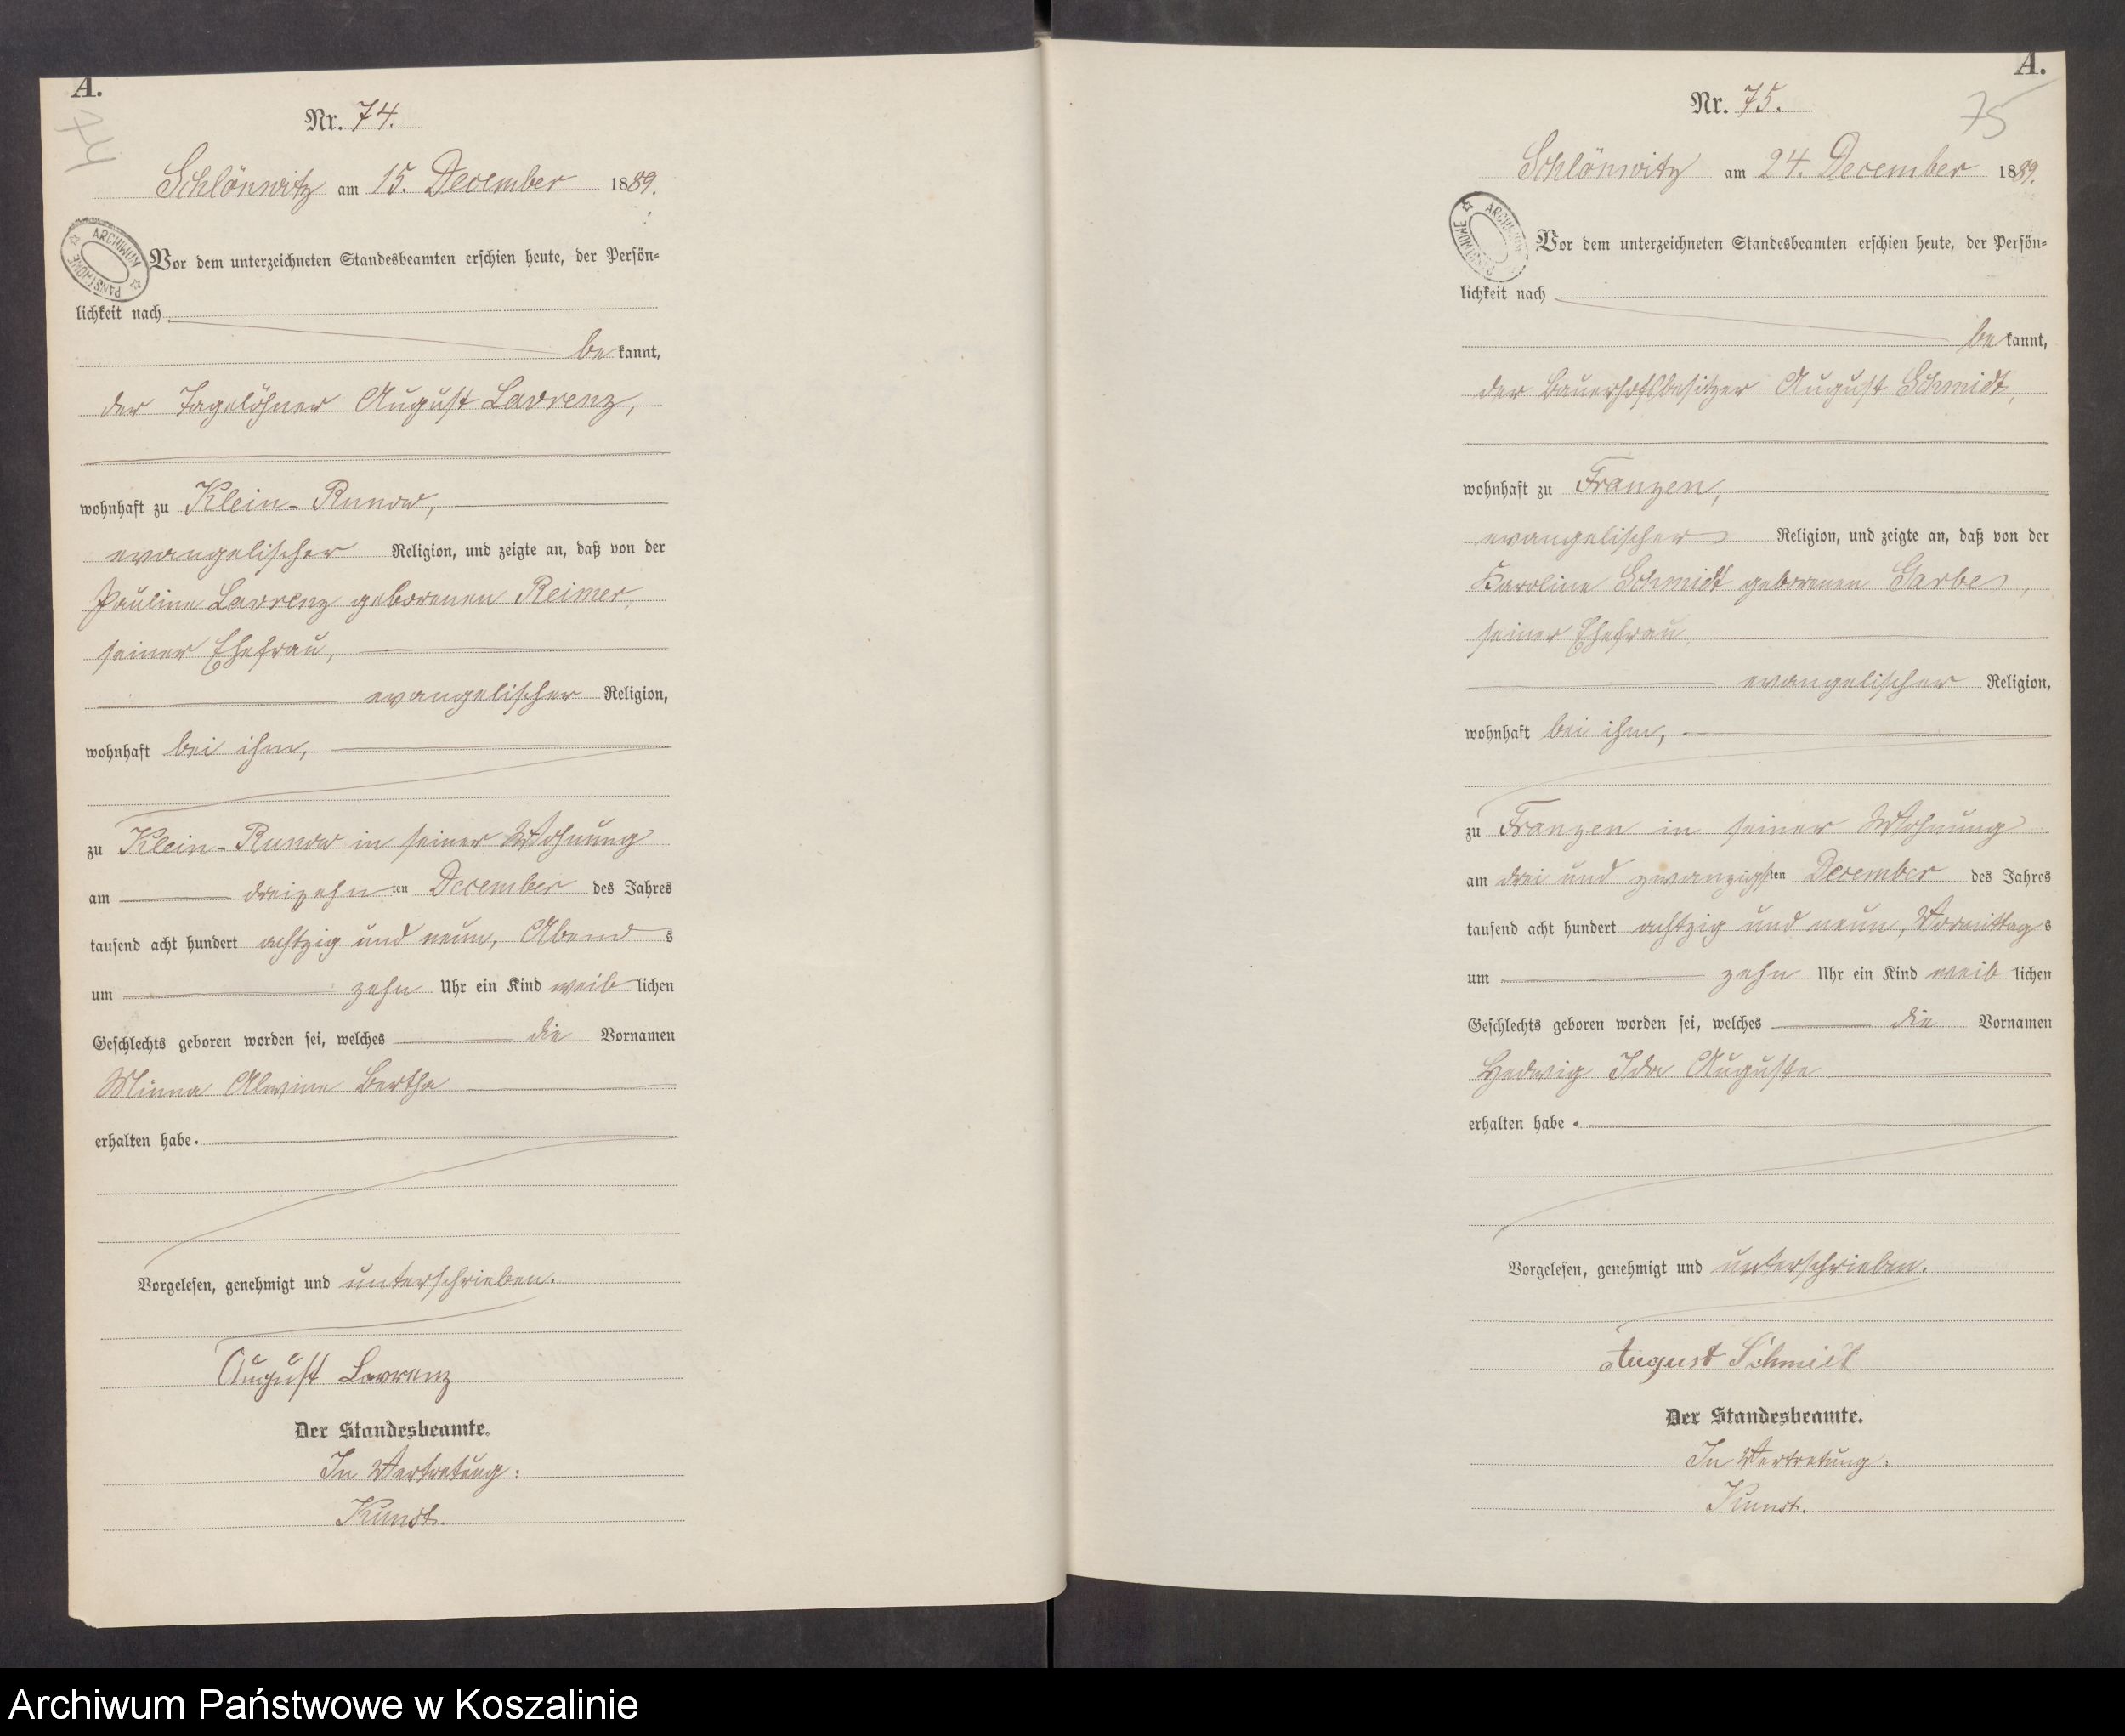 A.
74
Nr. 74.
Schlönwitz am 15. December 1889.
ARCHIWUM PAŃSTWOWE
Vor dem unterzeichneten Standesbeamten erschien heute, der Persön-
lichkeit nach
be kannt,
der Tagelöhner August Lavrenz,
wohnhaft zu Klein-Runow,
evangelischer Religion, und zeigte an, daß von der
Pauline Lavrenz geborenen Reimer,
seiner Ehefrau,
evangelischer Religion,
wohnhaft bei ihm,
zu Klein-Runow in seiner Wohnung
am dreizehn ten December des Jahres
tausend acht hundert achtzig und neun, Abend s
um zehn Uhr ein Kind weib lichen
Geschlechts geboren worden sei, welches die Vornamen
Minna Alwine Bertha
erhalten habe.
Vorgelesen, genehmigt und unterschrieben.
August Lavrenz
Der Standesbeamte.
In Vertretung:
Kunst.
A.
75
Nr. 75.
Schlönwitz am 24. December 1889.
ARCHIWUM PAŃSTWOWE
Vor dem unterzeichneten Standesbeamten erschien heute, der Persön-
lichkeit nach
be kannt,
der Bauerhofsbesitzer August Schmidt,
wohnhaft zu Franzen,
evangelischer Religion, und zeigte an, daß von der
Karoline Schmidt geborenen Garbe,
seiner Ehefrau,
evangelischer Religion,
wohnhaft bei ihm,
zu Franzen in seiner Wohnung
am drei und zwanzigsten December des Jahres
tausend acht hundert achtzig und neun, Vormittag s
um zehn Uhr ein Kind weib lichen
Geschlechts geboren worden sei, welches die Vornamen
Hedwig Ida Auguste
erhalten habe.
Vorgelesen, genehmigt und unterschrieben.
August Schmidt
Der Standesbeamte.
In Vertretung:
Kunst.
Archiwum Państwowe w Koszalinie